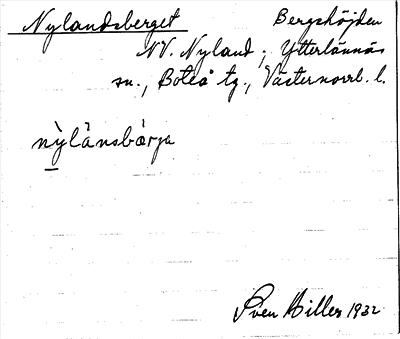 Nylandsberget Bergshöjden
NV. Nyland; Ytterlännäs
sn., Boteå tg., Västernorrl. l.
nỳlánsbærja
Sven Hiller 1932